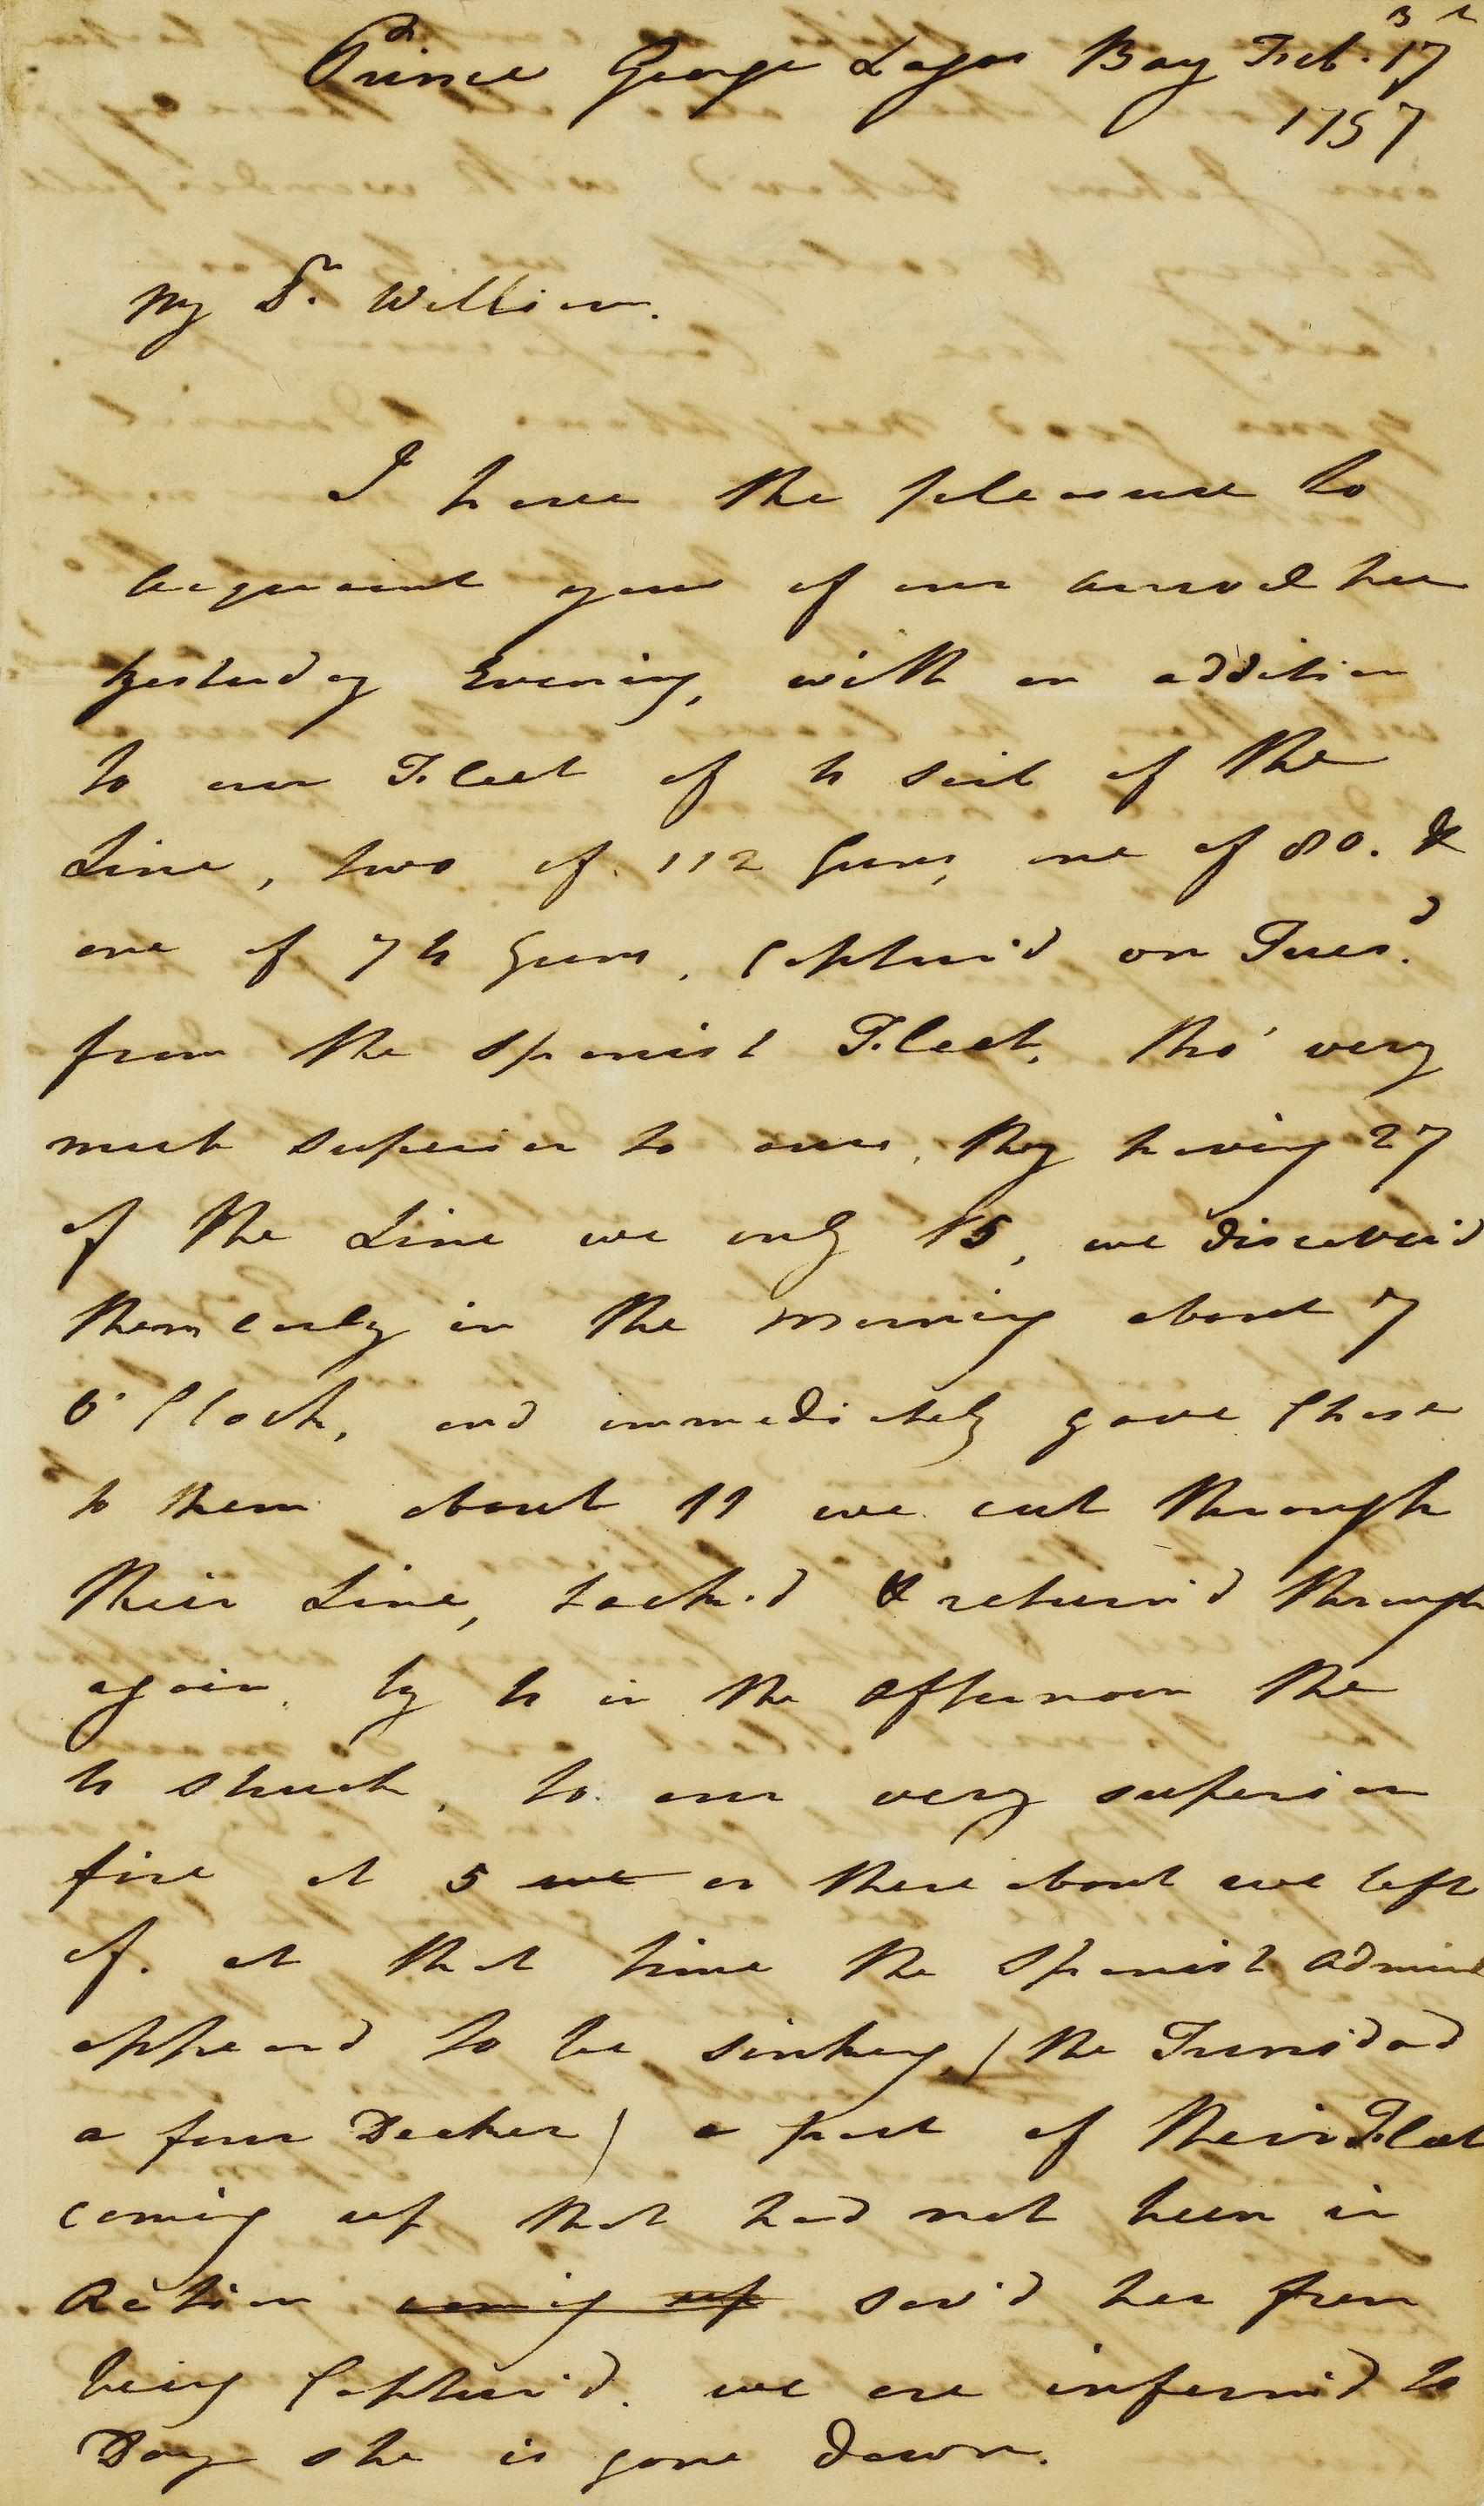 Prince George Lagos Bay Feb. 17
1797
My Dr. William.
I have the pleasure to
acquaint you of our arrival here
yesterday Evening, with an addition
to our Fleet of 4 sail of the
Line, two of 112 Guns, one of 80. &
one of 74 Guns, Captur'd on Tuesd.
from the Spanish Fleet, tho' very
much superior to ours, they having 27
of the Line we only 15, we discover'd
them early in the morning about 7
O'Clock, and immediately gave Chase
to them about 11 we cut through
their Line, tack'd & return'd through
again, by 4 in the afternoon the
4 struck, to our very superior
fire at 5 we or there about we left
of. at that time the Spanish Admiral
appeard to be sinking, (the Trinidad
a four Decker) a part of their Fleet
coming up that had not been in
Action coming up sav'd her from
being Captur'd. we are inform'd to
Day she is gone down.